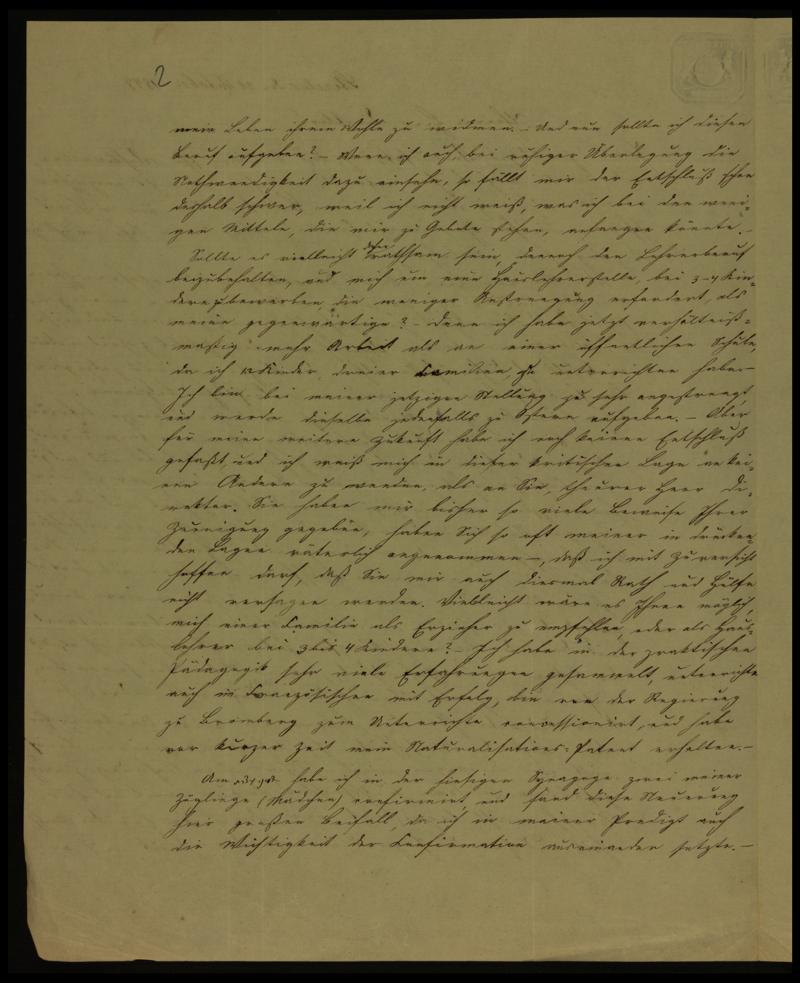 2
mein Leben ihrem Wohle zu widmen. – Und nun sollte ich diesen
Beruf aufgeben? – Wenn ich auch bei ruhiger Überlegung die
Nothwendigkeit dazu einsehe, so fällt mir der Entschluß schon
deshalb schwer, weil ich nicht weiß, was ich bei den weni-
gen Mitteln, die mir zu Gebote stehen, anfangen könnte. –
Sollte es vielleicht rathsam sein, dennoch den Lehrerberuf
beizubehalten, und mich um eine Hauslehrerstelle, bei 3-4 Kin-
dern zu bewerben, die weniger Anstrengung erfordert, als
meine gegenwärtige? – Denn ich habe jetzt verhältniß-
mäßig mehr Arbeit als an einer öffentlichen Schule,
da ich 12 Kinder dreier Familien zu unterrichten habe –
Ich bin bei meiner jetzigen Stellung zu sehr angestrengt,
und werde dieselbe jedenfalls zu Ostern aufgeben. – Aber
für meine weitere Zukunft habe ich noch keinen Entschluß
gefaßt und ich weiß mich in dieser kritischen Lage an kei-
nen Andern zu wenden, als an Sie, theurer Herr Di-
rektor. Sie haben mir bisher so viele Beweise Ihrer
Zuneigung gegeben, haben Sich so oft meiner in drücken-
den Lagen väterlich angenommen –, daß ich mit Zuversicht
hoffen darf, daß Sie mir auch diesmal Rath und Hilfe
nicht versagen werden. Vielleicht wäre es Ihnen möglich,
mich einer Familie als Erzieher zu empfehlen, oder als Haus-
lehrer bei 3 bis 4 Kindern? – Ich habe in der praktischen
Pädagogik sehr viele Erfahrungen gesammelt, unterrichte
auch im Französischen mit Erfolg, bin von der Regierung
zu Bromberg zum Unterrichte concessionirt, und habe
vor kurzer Zeit mein Naturalisations-Patent erhalten. –
Am habe ich in der hiesigen Synagoge zwei meiner
Zöglinge (Mädchen) confirmirt, und fand diese Neuerung
hier großen Beifall, da ich in meiner Predigt auch
die Wichtigkeit der Confirmation auseinander setzte. –